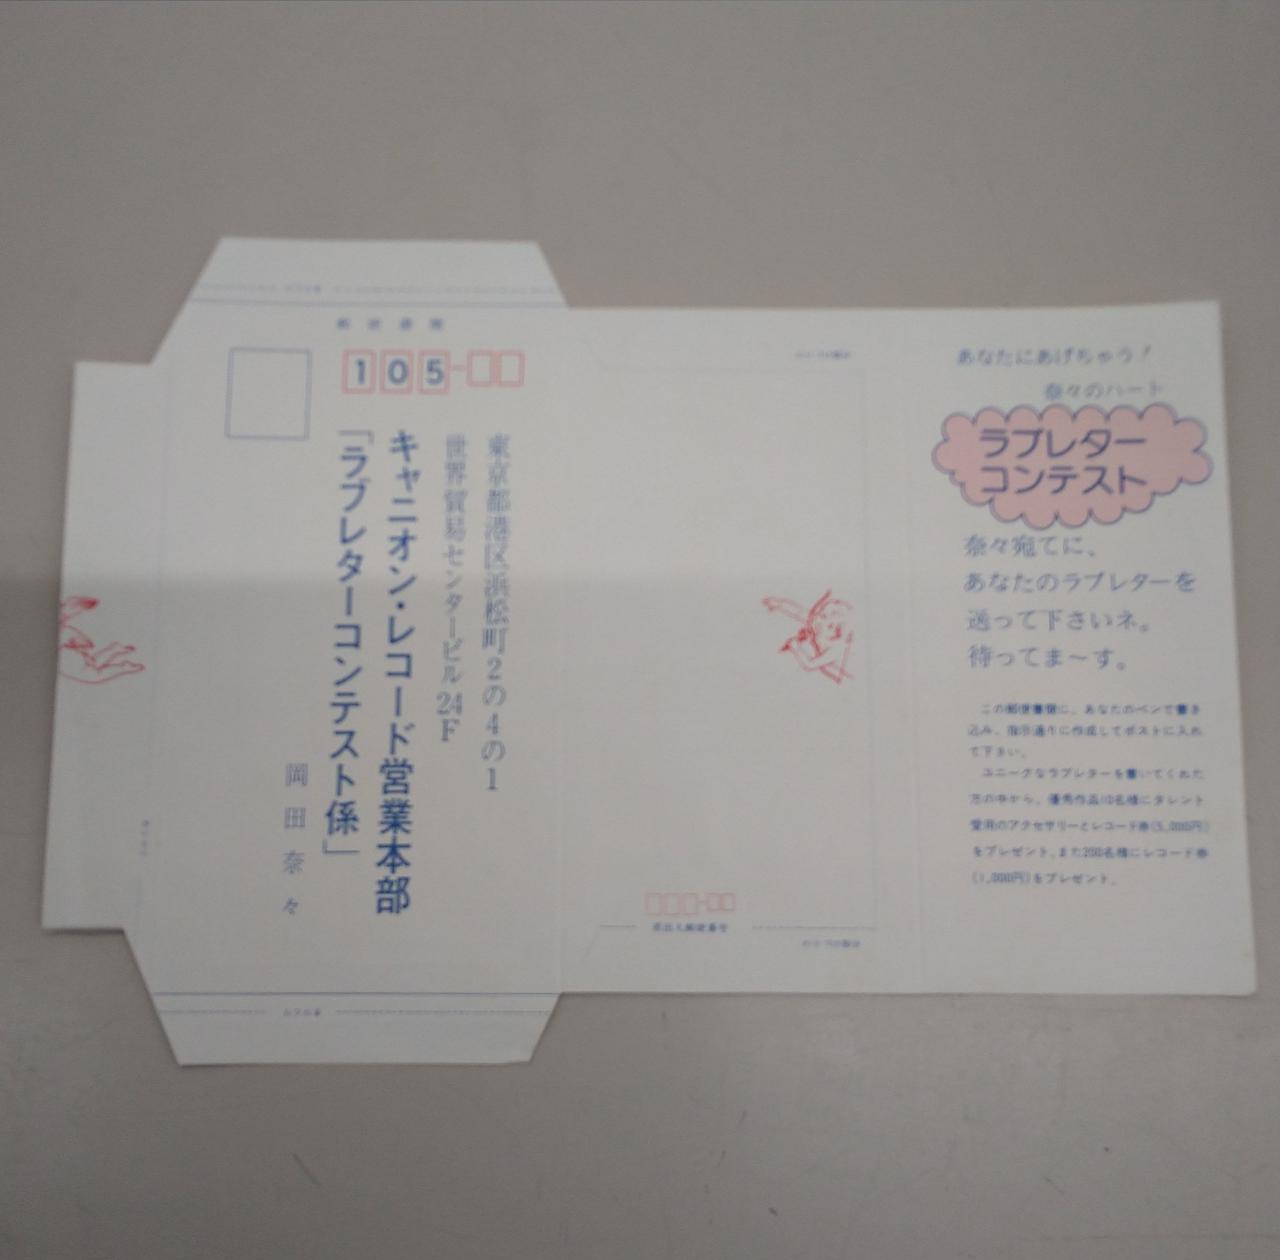 郵便書簡
105
東京都港区浜松町2の4の1
世界貿易センタービル24F
キャニオン・レコード営業本部
「ラブレターコンテスト係」
岡田奈々
差出人郵便番号
あなたにあげちゃう!
奈々のハート
ラブレター
コンテスト
奈々宛てに、
あなたのラブレターを
送って下さいネ。
待ってま〜す。
この郵便書簡に、あなたのペンで書き
込み、指示通りに作成してポストに入れ
て下さい。
ユニークなラブレターを書いてくれた
方の中から、優秀作品10名様にタレント
愛用のアクセサリーとレコード券(5,000円)
をプレゼント。また200名様にレコード券
(1,000円)をプレゼント。